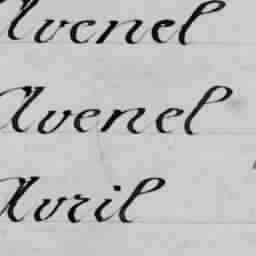 Avenel
Avenel
Avril